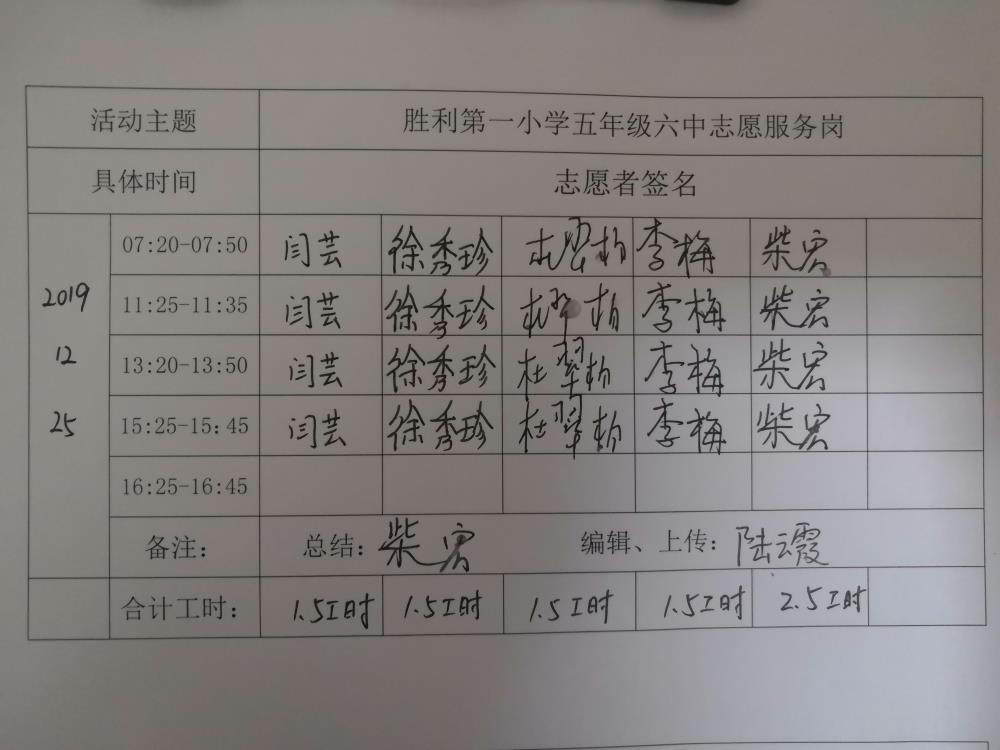 活动主题 胜利第一小学五年级六中志愿服务岗
具体时间 志愿者签名
07:20-07:50 闫芸 徐秀珍 李梅 柴宏
2019 11:25-11:35 闫芸 徐秀珍 李梅 柴宏
12 13:20-13:50 闫芸 徐秀珍 杜翠柏 李梅 柴宏
25 15:25-15:45 闫芸 徐秀珍 杜翠柏 李梅 柴宏
16:25-16:45
备注: 总结: 柴宏 编辑、上传: 陆云霞
合计工时: 1.5工时 1.5工时 1.5工时 1.5工时 2.5工时